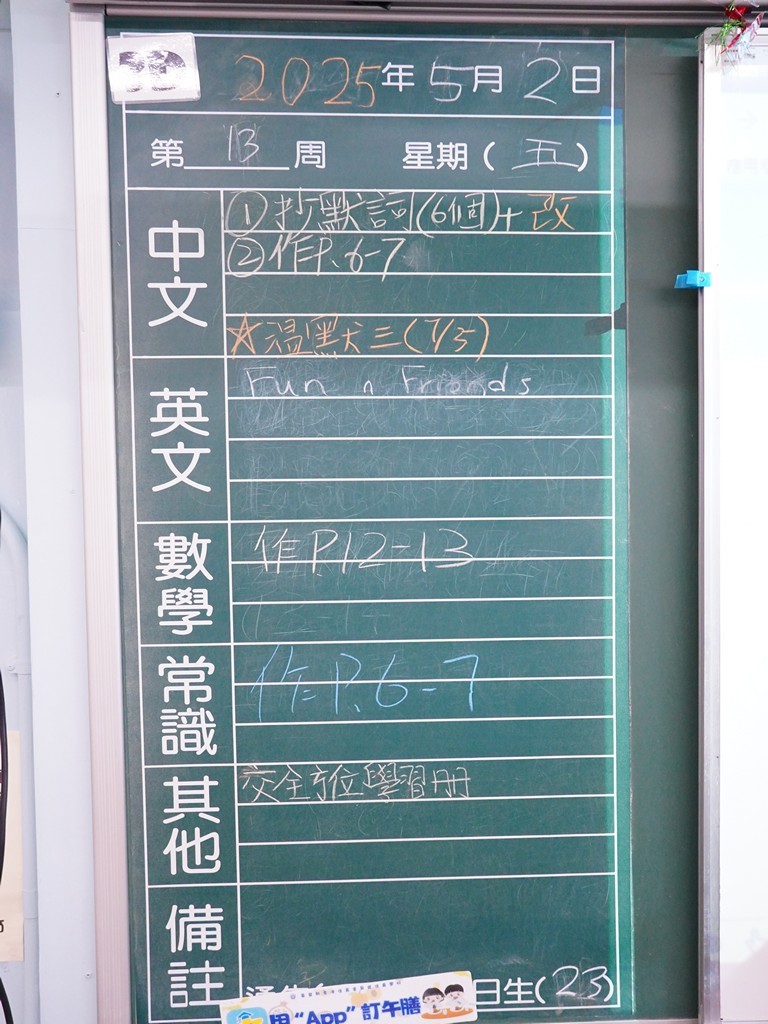 2025年5月2日
第13周 星期(五)
中文
①抄默詞(6個)+改
②作P.6-7
☆溫默三(7/5)
英文
Fun n Friends
數學
作P12-13
常識
作P.6-7
其他
交全方位學習冊
備註
日生(23)
用“App”訂午膳